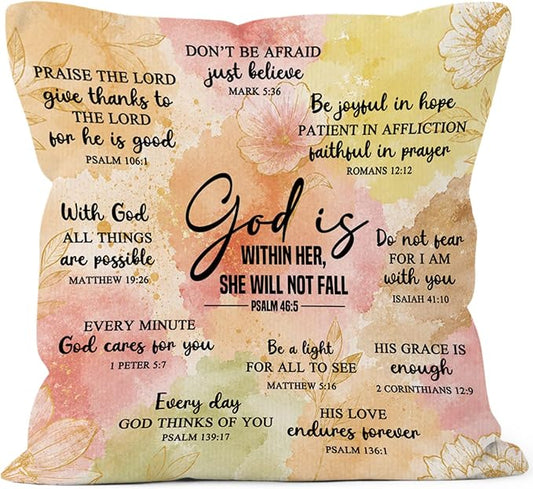 DON'T BE AFRAID
just believe
MARK 5:36
PRAISE THE LORD
give thanks to
THE LORD
for he is good
PSALM 106:1
Be joyful in hope
PATIENT IN AFFLICTION
faithful in prayer
ROMANS 12:12
With God
ALL THINGS
are possible
MATTHEW 19:26
God is
WITHIN HER,
SHE WILL NOT FALL
PSALM 46:5
Do not fear
FOR I AM
with you
ISAIAH 41:10
EVERY MINUTE
God cares for you
1 PETER 5:7
Be a light
FOR ALL TO SEE
MATTHEW 5:16
HIS GRACE IS
enough
2 CORINTHIANS 12:9
Every day
GOD THINKS OF YOU
PSALM 139:17
HIS LOVE
endures forever
PSALM 136:1